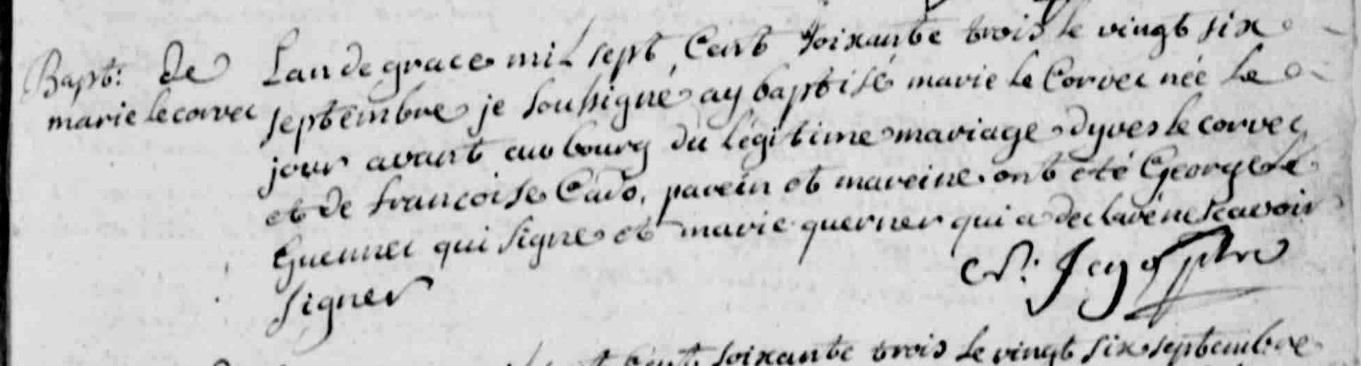 Bapt: de
marie le corvec
Lan de grace mil sept Cent soixante trois le vingt six
septembre je soussigné ay baptisé marie le Corvec née le
jour avant au bourg du légitime mariage dyves le corvec
et de francoise Cado, parein et mareine ont été George le
Guennec qui signe et marie querner qui a declaré ne scavoir
signer
ptre
Cent soixante trois le vingt six septembre